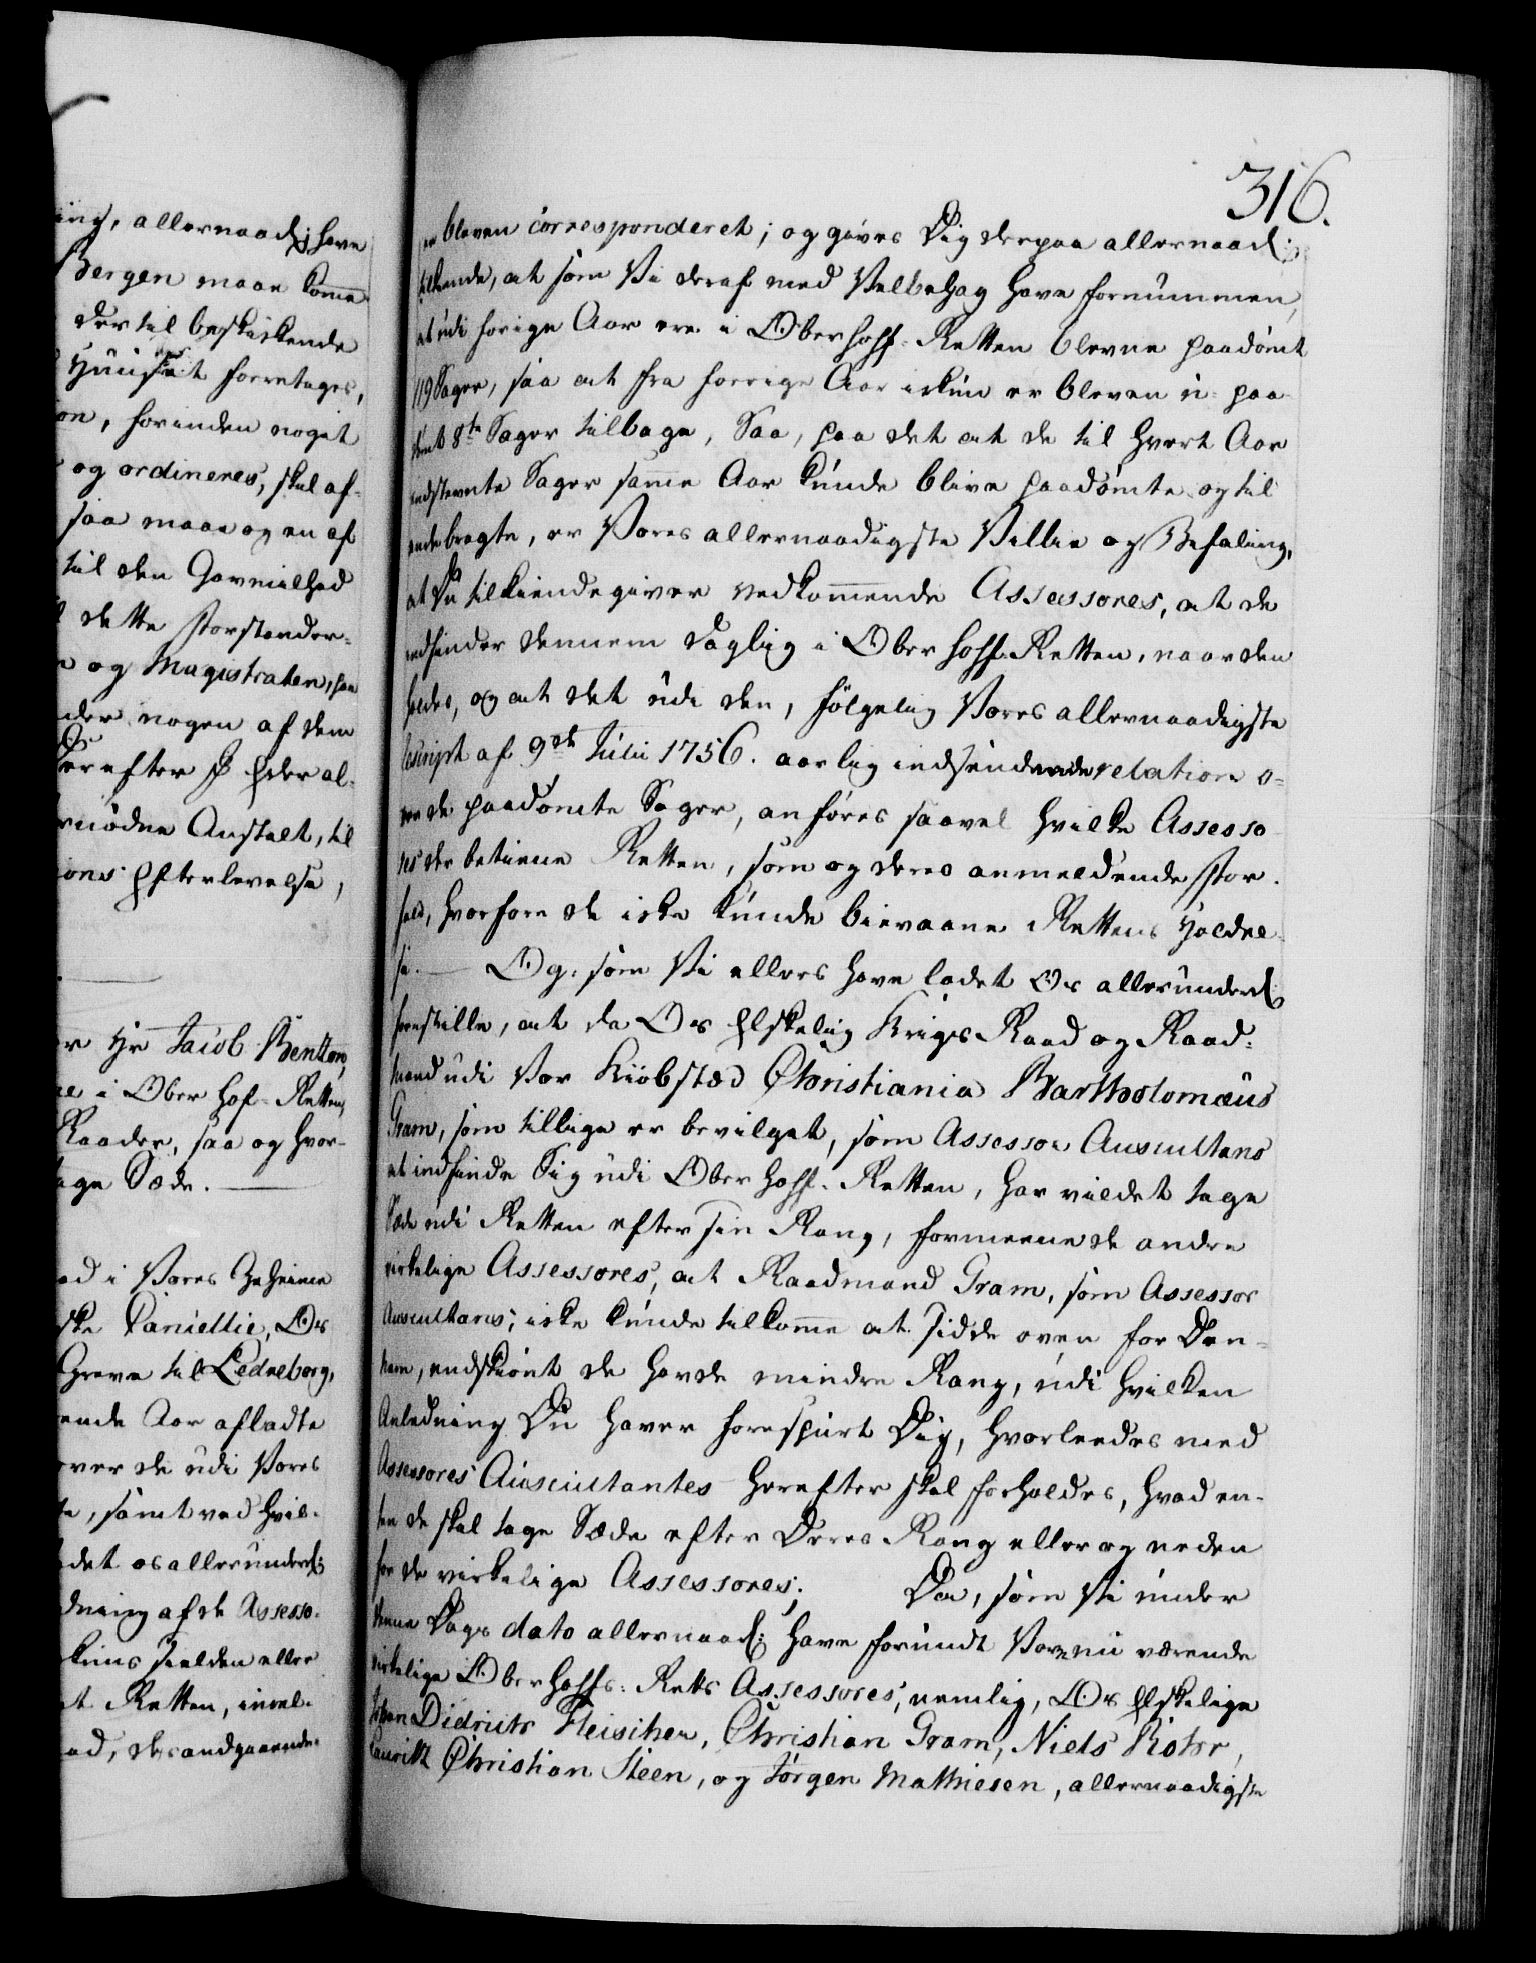 ing, allernaad; have
Bergen maae komme
der til beskikkende
Huuset foretages,
on, forinden noget
og ordineres, skal af-
saa maae og en af
til den Gavmilhed
dette Forstander-
og Magistraten, saa
nogen af dem
Derefter I Eder al-
Anstalt, til
ons Efterlevelse,
Hr Jacob Bentzon,
i Ober Hof-Retten,
Raader, saa og hvor-
tage Sæde.
ad i Vores Geheime
ske Cancellie, Os
Greve til Ledreborg,
ende Aar afladte
over de udi Vores
samt ved hvil-
det os allerunderd;
dning af de Assesso-
sielden eller
at Retten,
ad,
316.
er bleven corresponderet; og gives Dig derpaa allernaad;
tilkiende, at som Vi deraf med Velbehag have fornummen,
at udi forige Aar ere i Oberhoff-Retten blevne paadømt
119 Sager, saa at fra forrige Aar ickun er bleven u-paa
dømt 8te Sager tilbage, Saa, paa det at de til hvert Aar
indstevnte Sager samme Aar kunde blive paadømte og til
endebragte, er Vores allernaadigste Villie og Befaling,
at Du tilkiendegiver vedkommende Assessores, at de
indfinder dennem daglig i Oberhoff-Retten, naar den
holdes, og at det udi den, følgelig Vores allernaadigste
Rescript af 9de Julii 1756. aarlig indsendende relation o-
ver de paadømte Sager, anføres saavel hvilke Assesso
res der betiene Retten, som og deres anmeldende For-
fald, hvorfore de icke kunde bievaane Rettens Holdel-
se. — Og, som Vi ellers have ladet Os allerunderd;
forestille, at da Os Elskelig Krigs Raad og Raad-
mand udi Vor Kiøbstæd Christiania Bartholomæus
Gram, som tillige er bevilget, som Assessor Auscultans
at indfinde Sig udi Oberhoff-Retten, har vildet tage
Sæde udi Retten efter sin Rang, formeene de andre
virkelige Assessores, at Raadmand Gram, som Assessor
Auscultans, icke kunde tilkomme at sidde oven for Den-
nem, endskiønt de havde mindre Rang, udi hvilken
Anledning Du haver forespurt Dig, hvorleedes med
Assessores Auscultantes herefter skal forholdes, hvad en-
ten de skal tage Sæde efter Deres Rang eller og neden
for de virkelige Assessores; Da, som Vi under
denne Dags dato allernaad; have forundt Vore nu værende
virkelige Oberhoffs-Retts Assessores, nemlig, Os Elskelige
Johan Didrich Fleischer, Christian Gram, Niels Rohr,
Lauritz Christian Steen, og Jørgen Mathiesen, allernaadigste